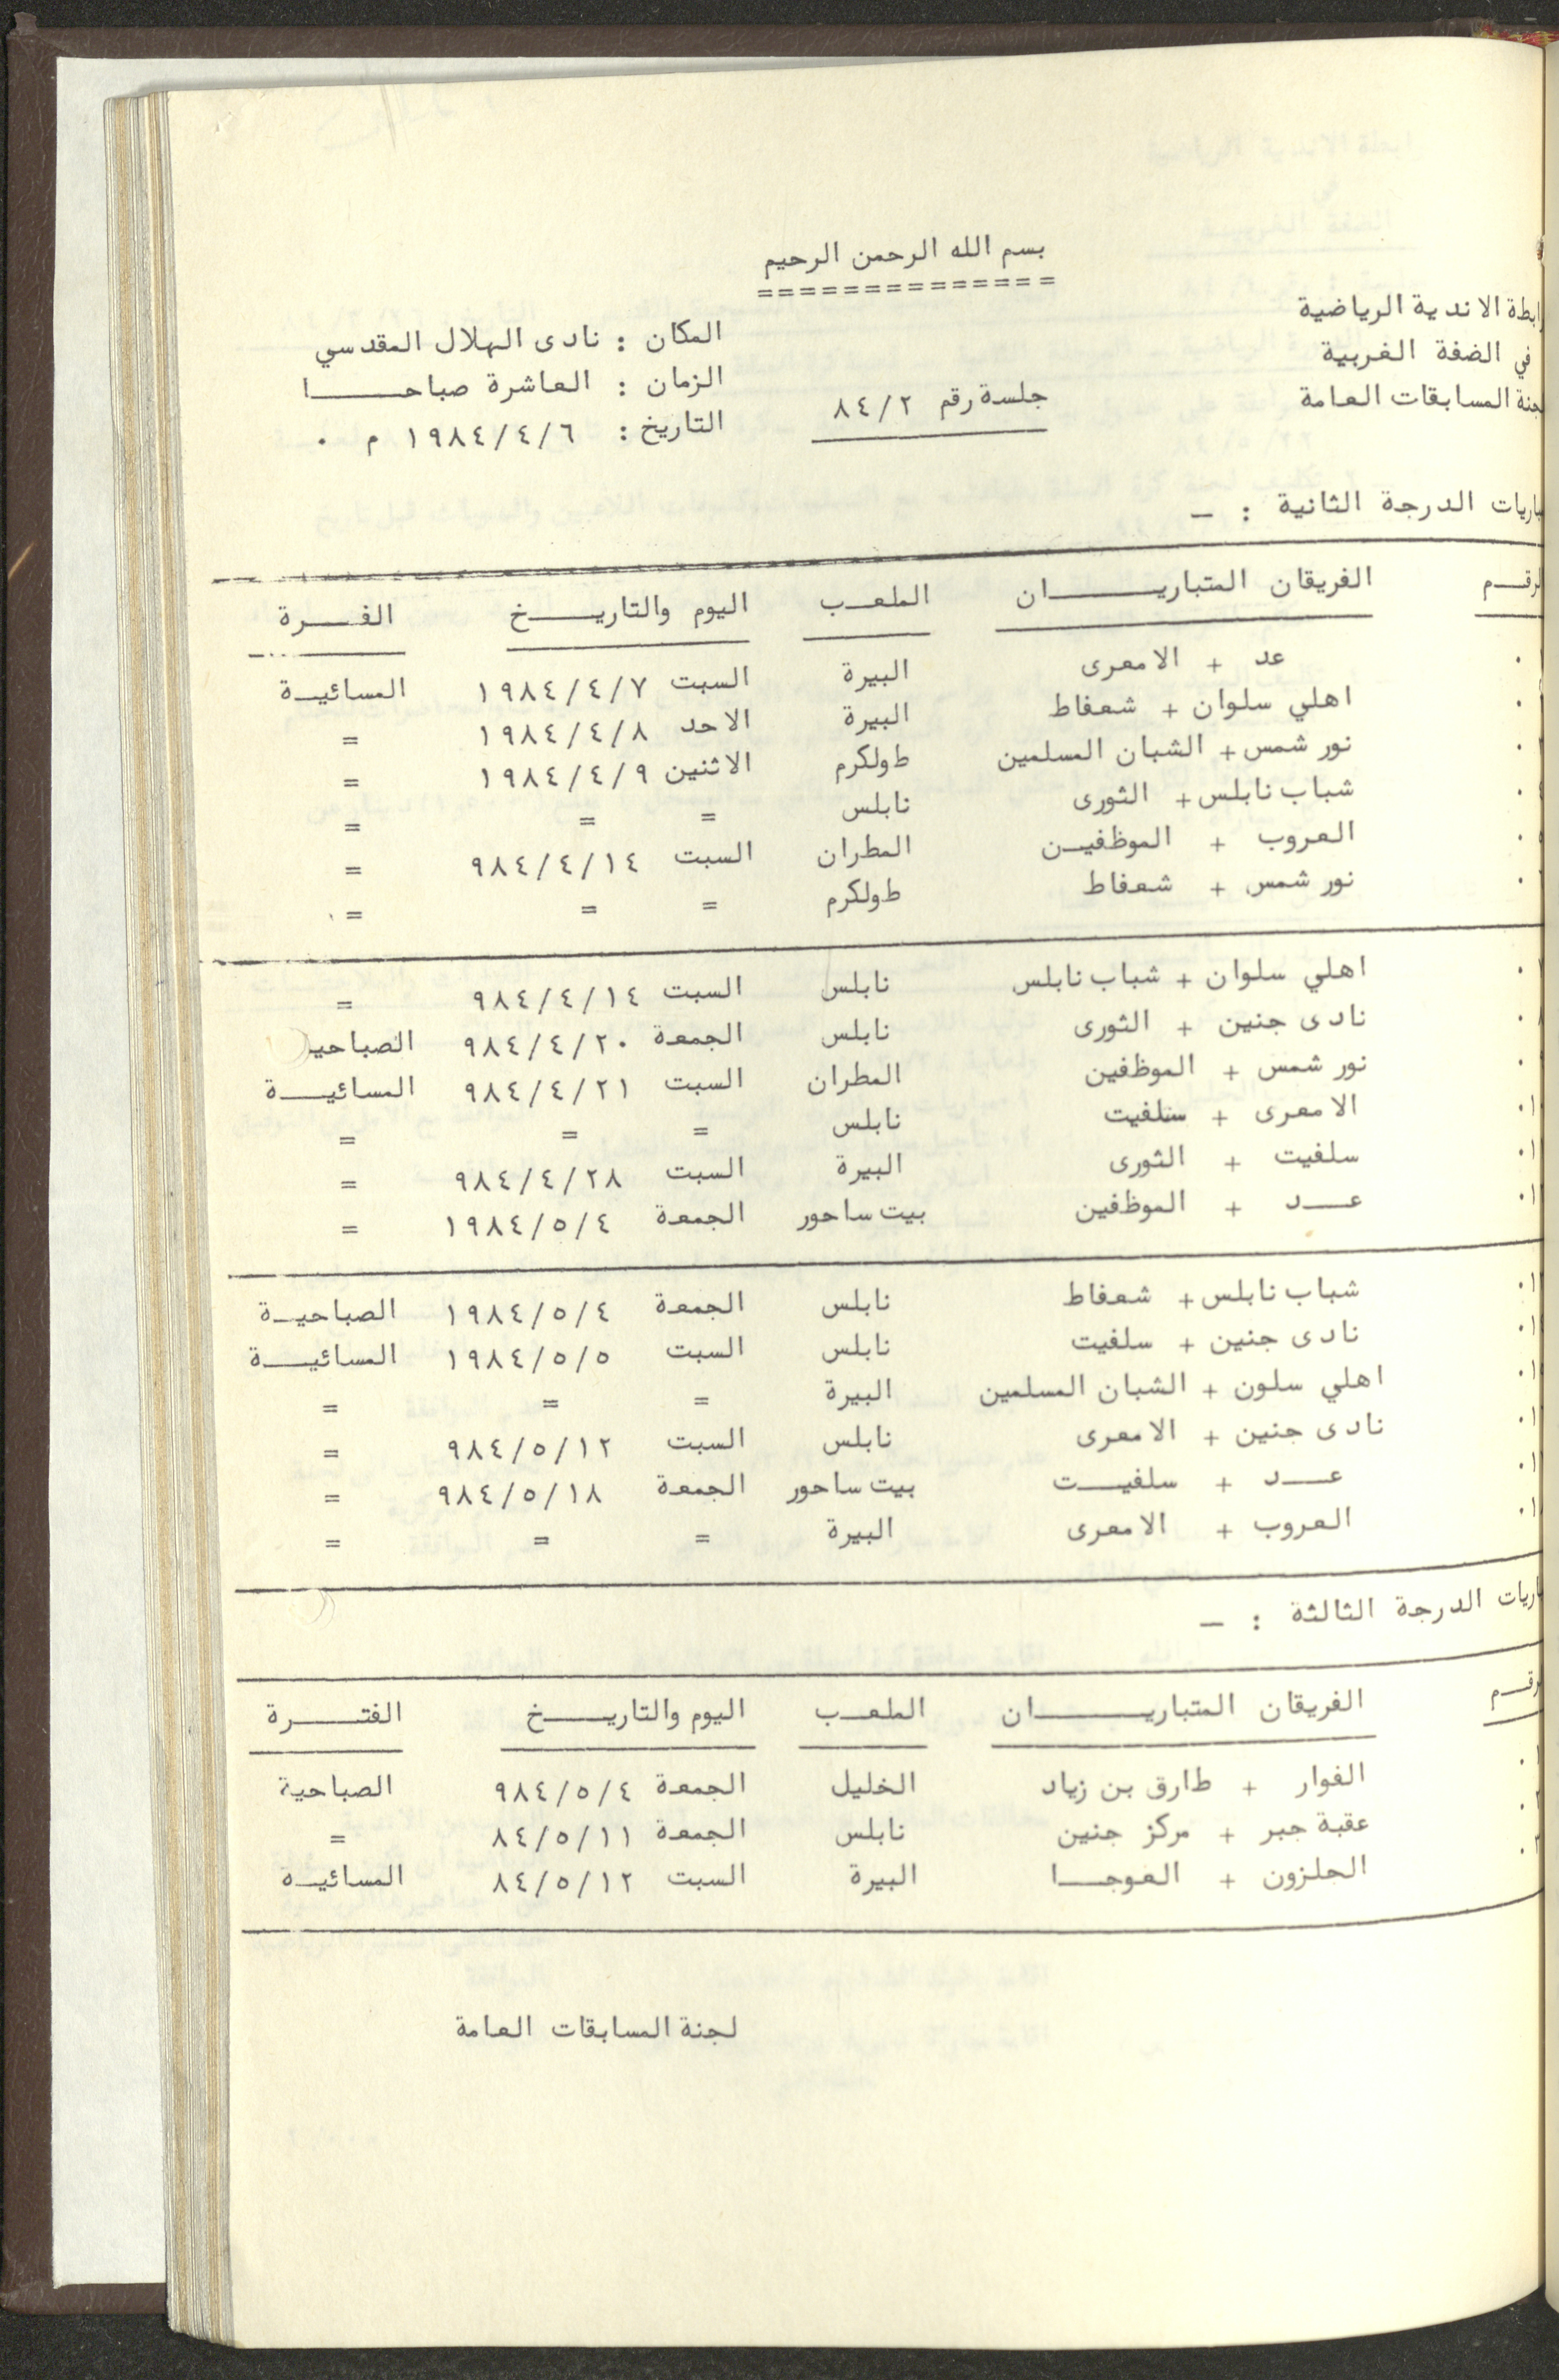 بسم الله الرحمن الرحيم
==============
رابطة الاندية الرياضية
في الضفة الغربية
لجنة المسابقات العامة
جلسة رقم ٨٤/٢
المكان : نادى الهلال المقدسي
الزمان : العاشرة صباحــــا
التاريخ : ١٩٨٤/٤/٦ م ٠
باريات الدرجة الثانية : ــ
لرقــم الفريقان المتباريــــان الملعـب اليوم والتاريــــخ الفــرة
عد + الامعرى البيرة السبت ١٩٨٤/٤/٧ المسائيـة
اهلي سلوان + شعفاط البيرة الاحد ١٩٨٤/٤/٨ =
نور شمس + الشبان المسلمين طولكرم الاثنين ١٩٨٤/٤/٩ =
شباب نابلس + الثورى نابلس = = =
العروب + الموظفيـن المطران السبت ٩٨٤/٤/١٤ =
نور شمس + شعفاط طولكرم = = =
اهلي سلوان + شباب نابلس نابلس السبت ٩٨٤/٤/١٤ =
نادى جنين + الثورى نابلس الجمعة ٩٨٤/٤/٢٠ الصباحيـ
نور شمس + الموظفين المطران السبت ٩٨٤/٤/٢١ المسائيــة
الامعرى + سلفيت نابلس = = =
سلفيت + الثورى البيرة السبت ٩٨٤/٤/٢٨ =
عــد + الموظفين بيت ساحور الجمعة ١٩٨٤/٥/٤ =
شباب نابلس + شعفاط نابلس الجمعة ١٩٨٤/٥/٤ الصباحيـة
نادى جنين + سلفيت نابلس السبت ١٩٨٤/٥/٥ المسائيــة
اهلي سلون + الشبان المسلمين البيرة = = =
نادى جنين + الامعرى نابلس السبت ٩٨٤/٥/١٢ =
عــد + سلفيــت بيت ساحور الجمعة ٩٨٤/٥/١٨ =
العروب + الامعرى البيرة = = =
باريات الدرجة الثالثة : ــ
لرقـم الفريقان المتباريــــان الملعـب اليوم والتاريــــخ الفتــرة
الفوار + طارق بن زياد الخليل الجمعة ٩٨٤/٥/٤ الصباحية
عقبة جبر + مركز جنين نابلس الجمعة ٨٤/٥/١١ =
الجلزون + العوجــا البيرة السبت ٨٤/٥/١٢ المسائيـة
لجنة المسابقات العامة